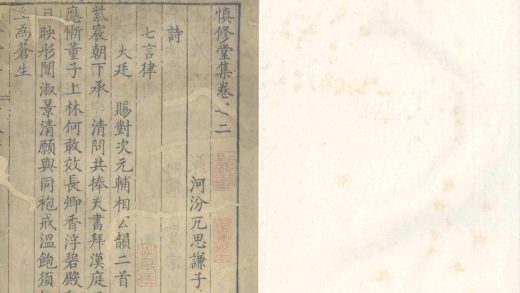 慎修堂集卷之二
河汾亢思謙子
詩
七言律
大廷賜對次元輔相公韻二首
紫宸朝下承清問共捧天書拜漢庭
應慚董子上林何敢效長卿香浮碧殿
日映彤闈淑景清願與同袍戒溫飽須
為蒼生